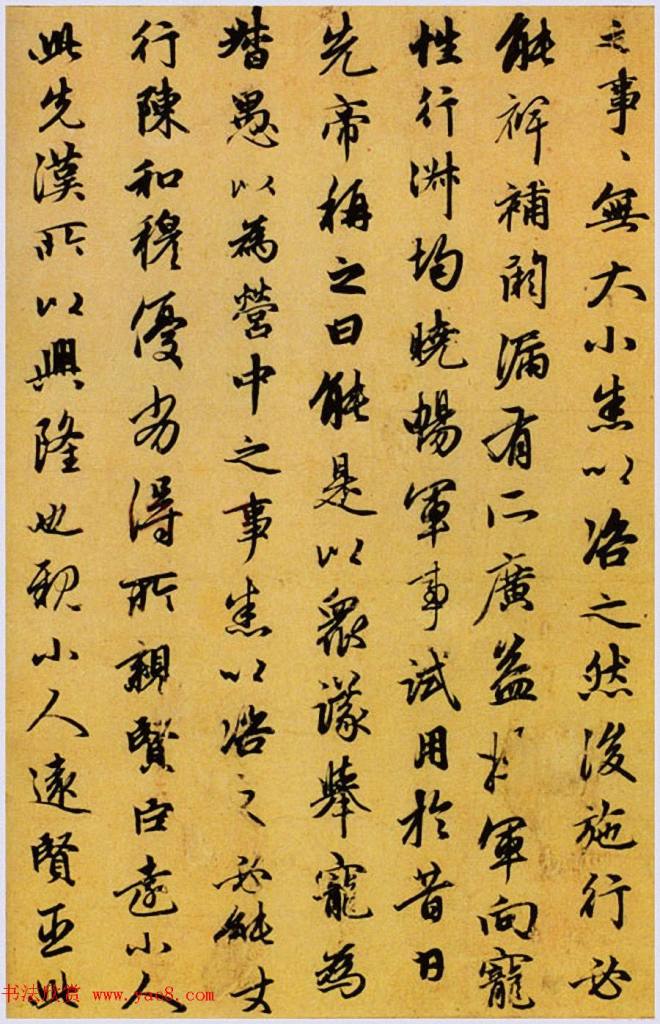 之事、無大小悉以咨之然後施行必
能裨補闕漏有所廣益將軍向寵
性行淑均曉暢軍事試用於昔日
先帝稱之曰能是以眾議舉寵為
督愚以為營中之事悉以咨之必能使
行陳和穆優劣得所親賢臣遠小人
此先漢所以興隆也親小人遠賢臣此
书法欣赏 www.yac8.com